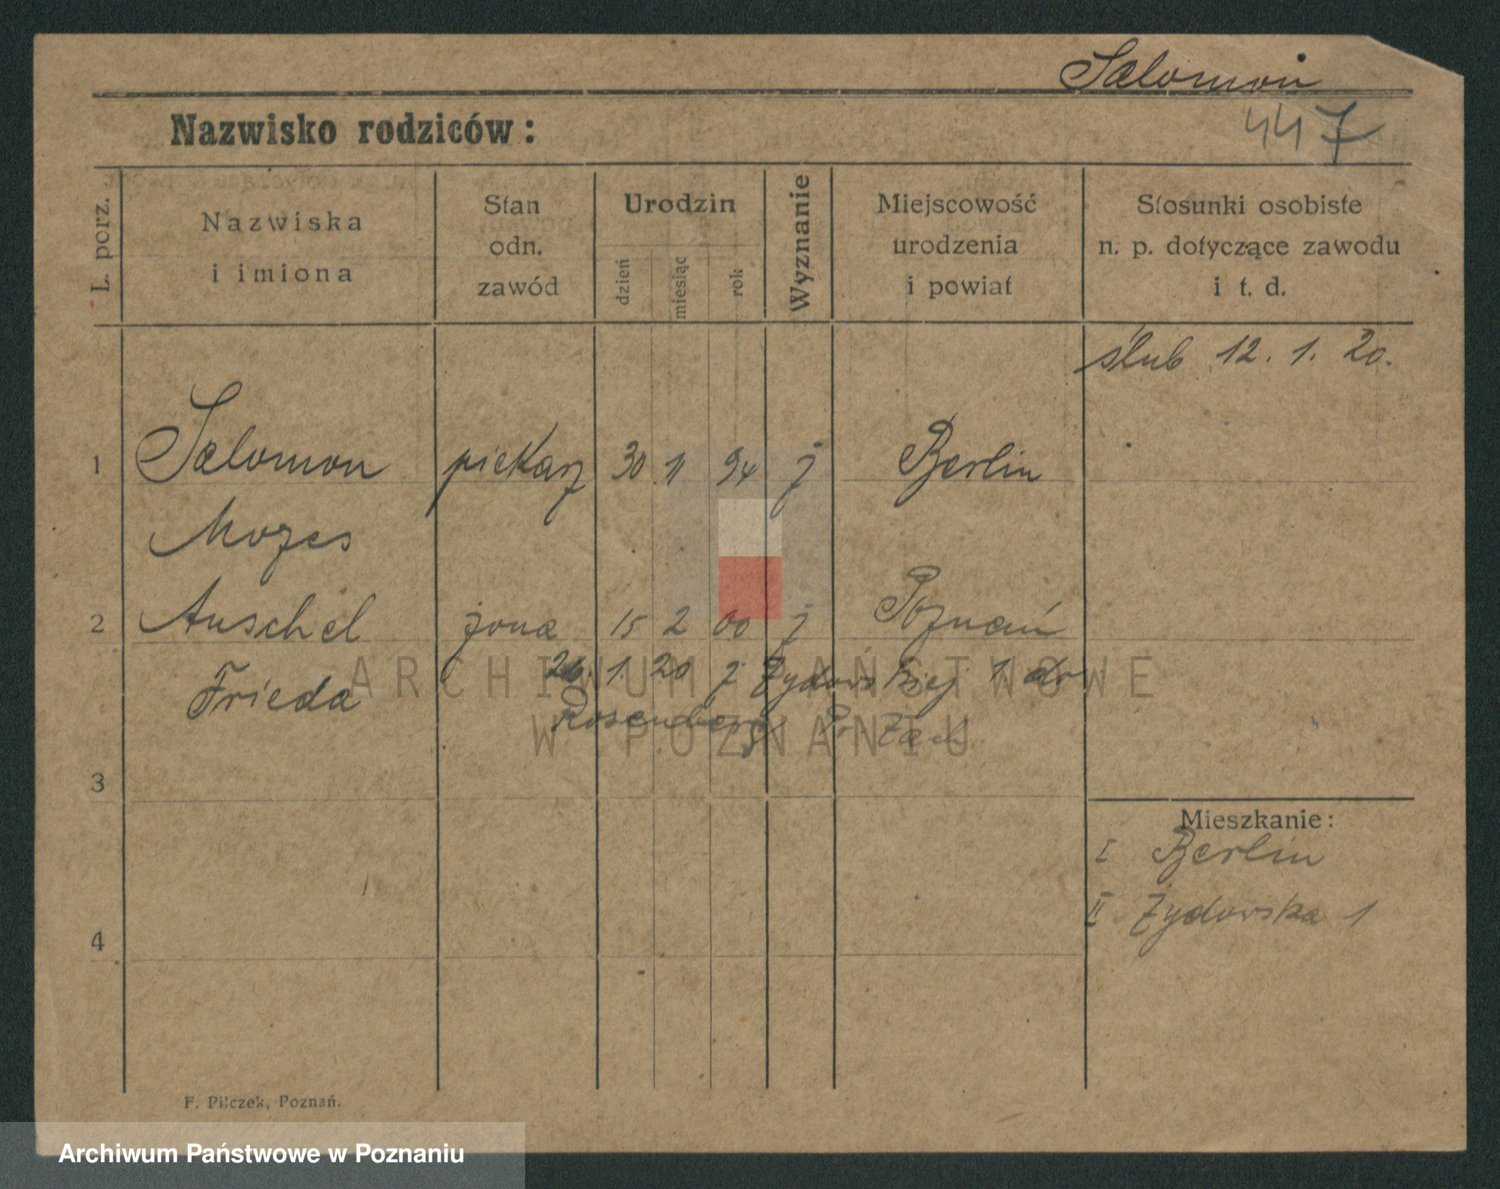 Salomon
447
Nazwisko rodziców:
L. porz.
Nazwiska
i imiona
Stan
odn.
zawód
Urodzin
dzień
miesiąc
rok
Wyznanie
Miejscowość
urodzenia
i powiat
Stosunki osobiste
n. p. dotyczące zawodu
i t. d.
ślub 12. 1. 20.
1 Salomon piekarz 30 11 94 j Berlin
Mozes
2 Auschel żona 15 2 00 j Poznań
Frieda
1. 20 z Żydowskiej 1 do
Rosenberg
3
Mieszkanie:
I Berlin
II Żydowska 1
4
F. Pilczek, Poznań.
ARCHIWUM PAŃSTWOWE
W POZNANIU
Archiwum Państwowe w Poznaniu